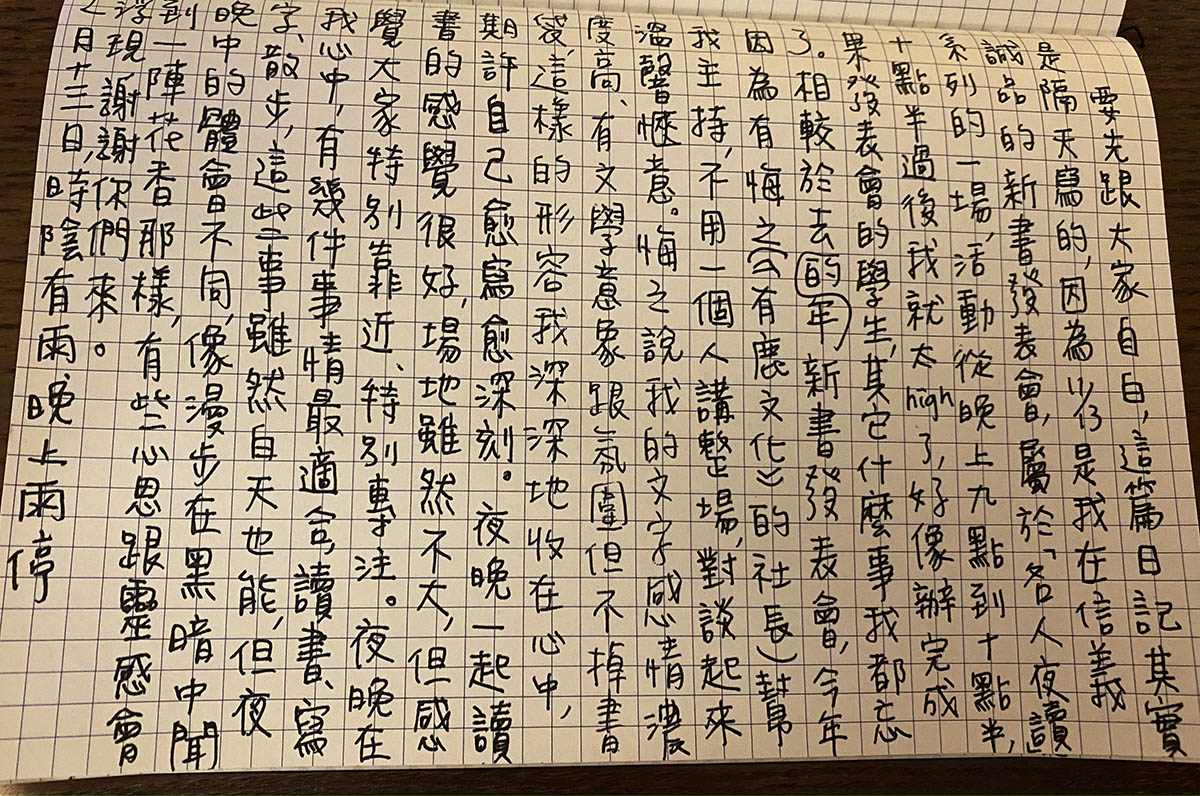 要先跟大家自白,這篇日記其實
是隔天寫的,因為11/13是我在信義
誠品的新書發表會,屬於「名人夜讀
系列的一場,活動從晚上九點到十點半,
十點半過後我就太high了,好像辦完成
果發表會的學生,其它什麼事我都忘
了。相較於去的年新書發表會,今年
因為有悔之(《有鹿文化》的社長)幫
我主持,不用一個人講整場,對談起來
溫馨愜意。悔之說我的文字感情濃
度高、有文學意象跟氛圍但不掉書
袋,這樣的形容我深深地收在心中,
期許自己愈寫愈深刻。夜晚一起讀
書的感覺很好,場地雖然不大,但感
覺大家特別靠近、特別專注。夜晚在
我心中,有幾件事情最適合,讀書、寫
字、散步,這些事雖然白天也能,但夜
晚中的體會不同,像漫步在黑暗中聞
到一陣花香那樣,有些心思跟靈感會
浮現。謝謝你們來。
月十三日,時陰有雨,晚上雨停